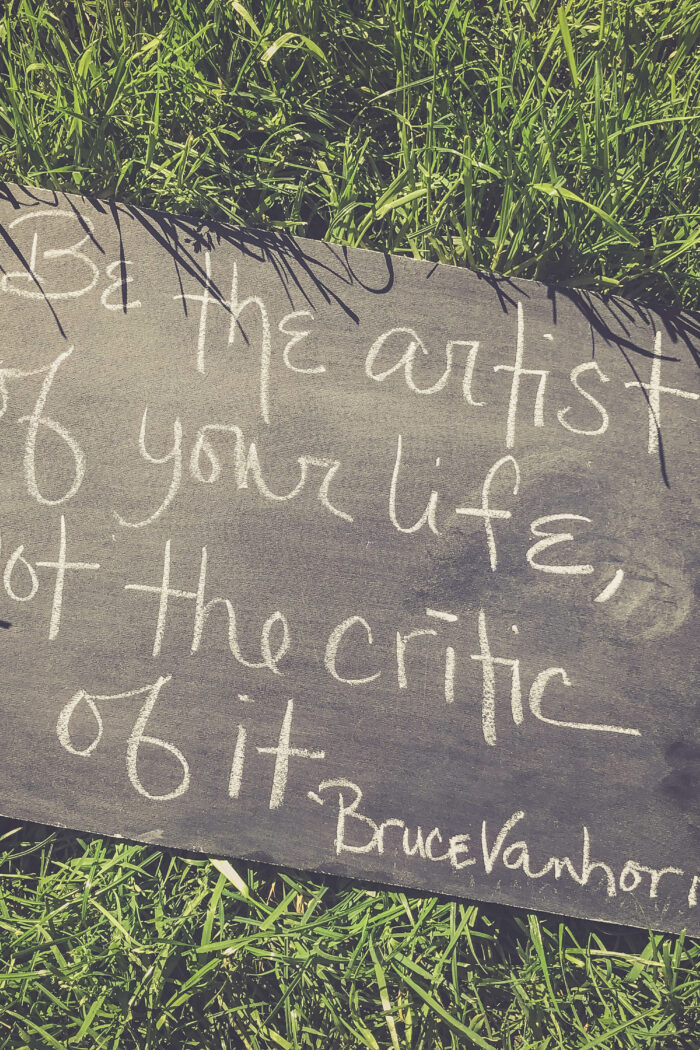 Be the artist
of your life,
not the critic
of it
- Bruce Vanhorn